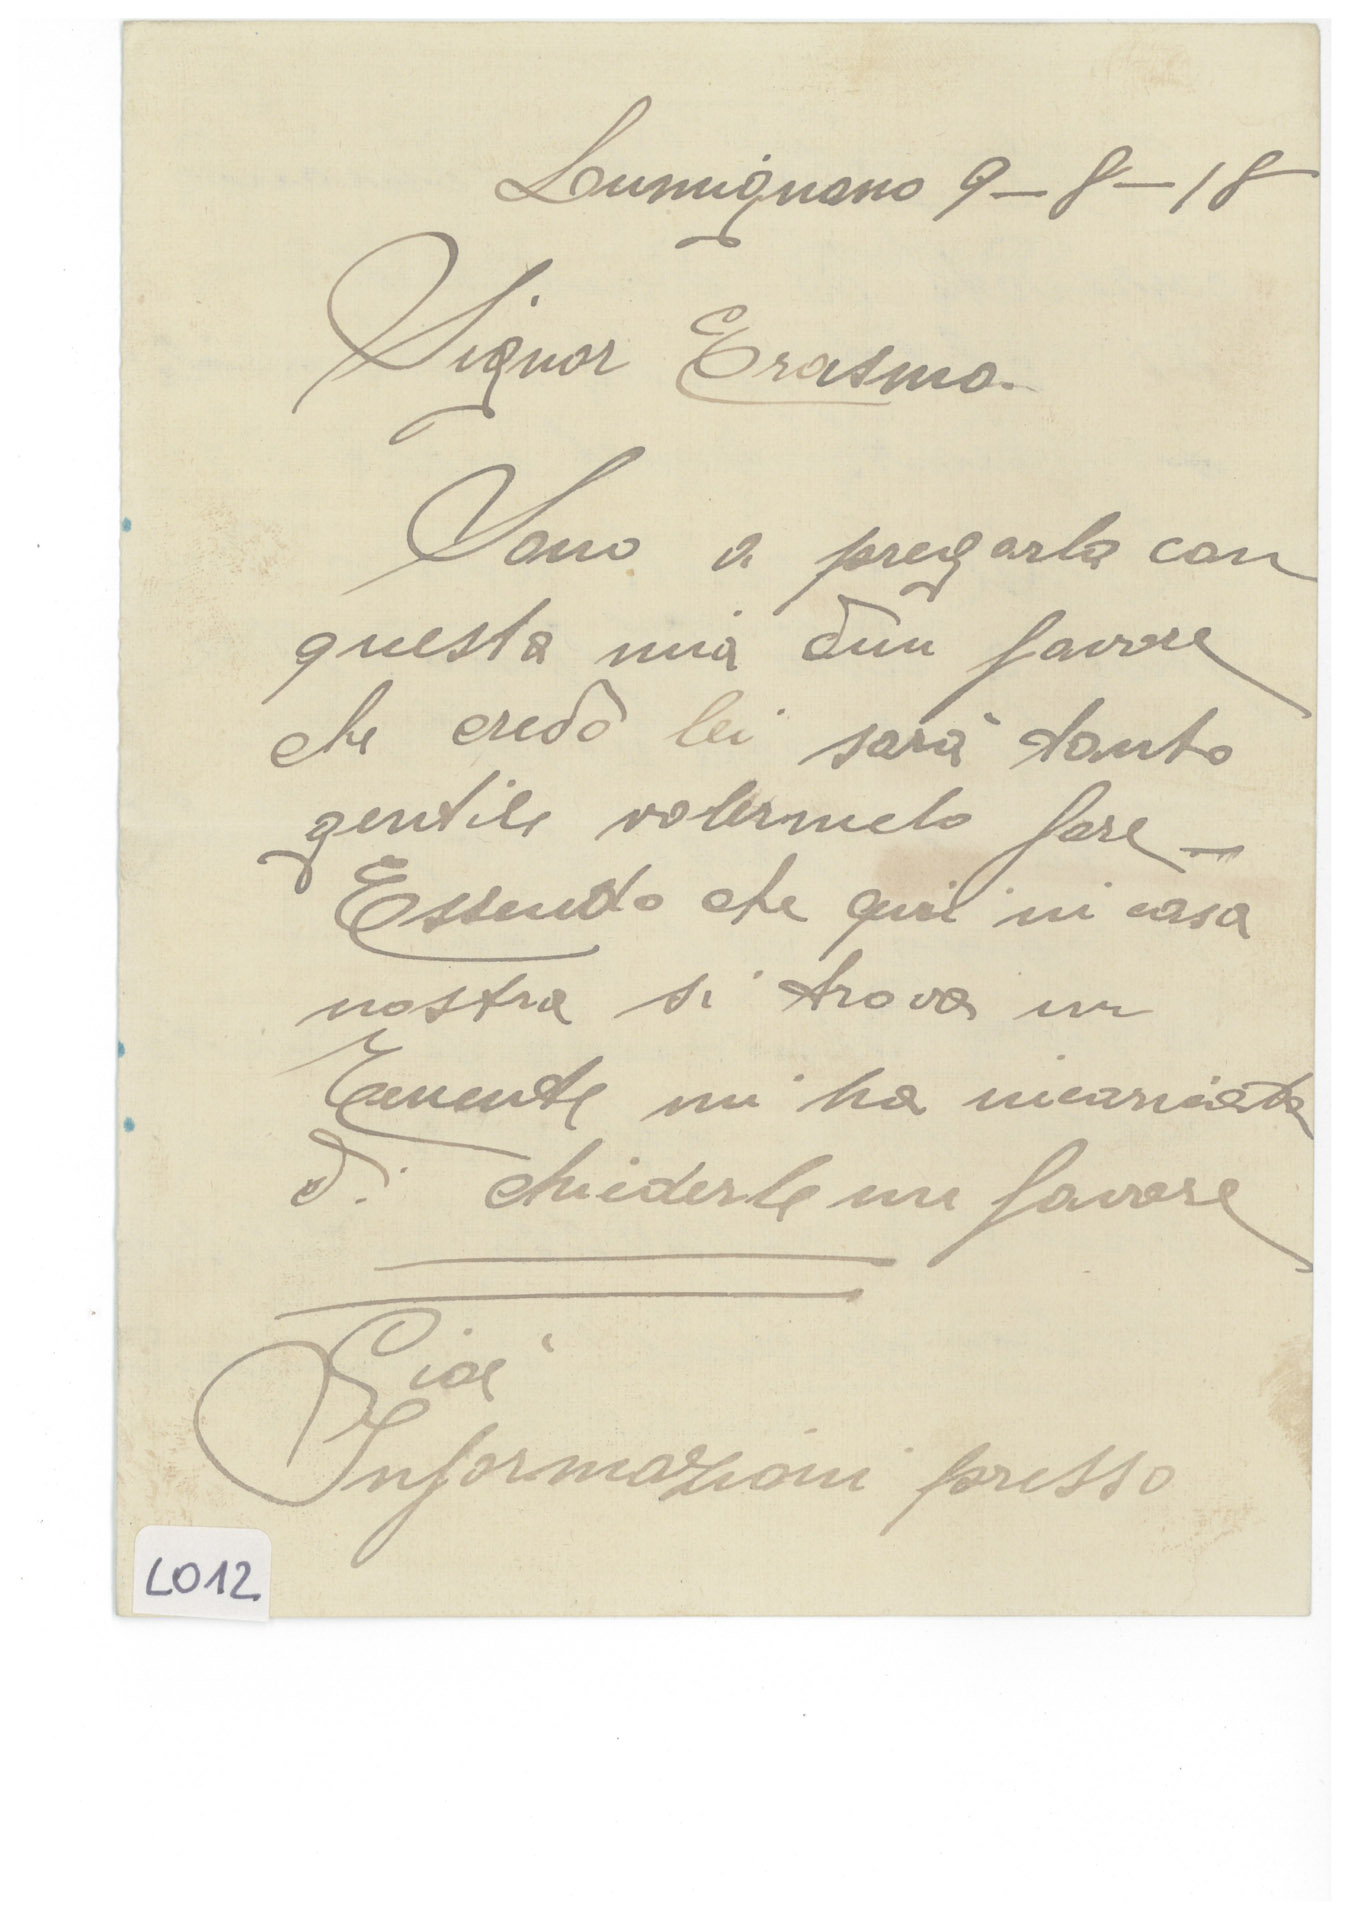 Lumignano 9-8-18
Signor Erasmo.
Sono a pregarla con
questa mia d'un favore
che credo lei sarà tanto
gentile volermelo fare_
Essendo che qui in casa
nostra si trova un
Tenente mi ha incaricata
di chiederle un favore
Cioè
Informazioni presso
LO12